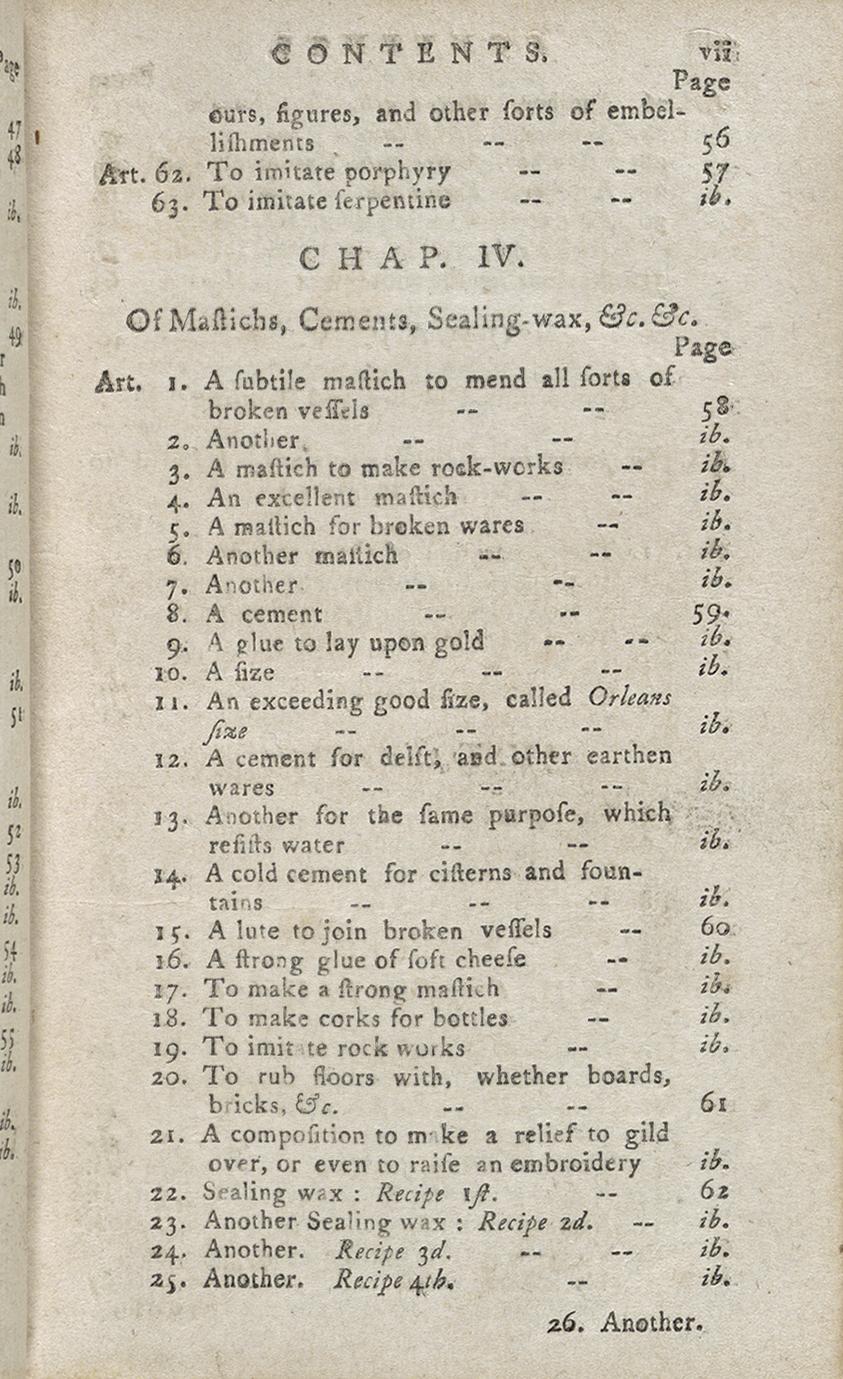 CONTENTS. vii
Page
ours, figures, and other ſorts of embel-
liſhments -- -- -- 56
Art. 62. To imitate porphyry -- -- 57
63. To imitate ſerpentine -- -- ib.
CHAP. IV.
Of Maſtichs, Cements, Sealing-wax, &c. &c.
Page
Art. 1. A ſubtile maſtich to mend all ſorts of
broken veſſels -- -- 58
2. Another. -- -- ib.
3. A maſtich to make rock-works -- ib.
4. An excellent maſtich -- -- ib.
5. A maſtich for broken wares -- ib.
6. Another maſtich -- -- ib.
7. Another -- -- ib.
8. A cement -- -- 59
9. A glue to lay upon gold -- -- ib.
10. A ſize -- -- -- ib.
11. An exceeding good ſize, called Orleans
ſize -- -- -- ib.
12. A cement for delft, and other earthen
wares -- -- -- ib.
13. Another for the ſame purpoſe, which
reſiſts water -- -- ib.
14. A cold cement for ciſterns and foun-
tains -- -- -- ib.
15. A lute to join broken veſſels -- 60
16. A ſtrong glue of ſoft cheeſe -- ib.
17. To make a ſtrong maſtich -- ib.
18. To make corks for bottles -- ib.
19. To imitate rock works -- ib.
20. To rub floors with, whether boards,
bricks, &c. -- -- 61
21. A compoſition to make a relief to gild
over, or even to raiſe an embroidery ib.
22. Sealing wax : Recipe 1ſt. -- 62
23. Another Sealing wax : Recipe 2d. -- ib.
24. Another. Recipe 3d. -- -- ib.
25. Another. Recipe 4th. -- ib.
26. Another.